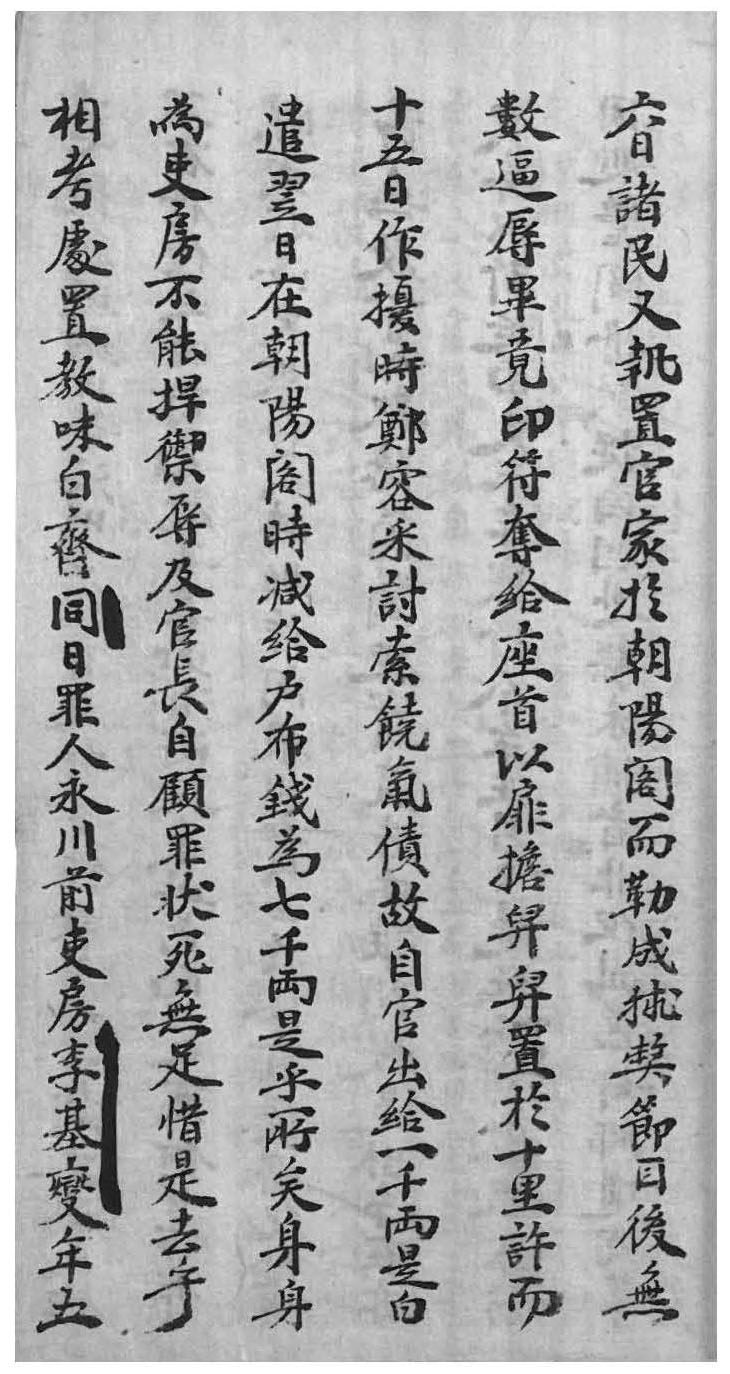 六日諸民又執置官家於朝陽閣而勒成捄契節目後無
數逼辱畢竟印符奪給座首以扉擔舁舁置於十里許而
十五日作擾時鄭容采討索饒氣債故自官出給一千両是白
遣翌日在朝陽閣時减給戶布錢為七千両是乎所矣身身
為吏房不能捍禦辱及官長自顧罪状死無足惜是去乎
相考處置教味白齊同日罪人永川前吏房李基變年五